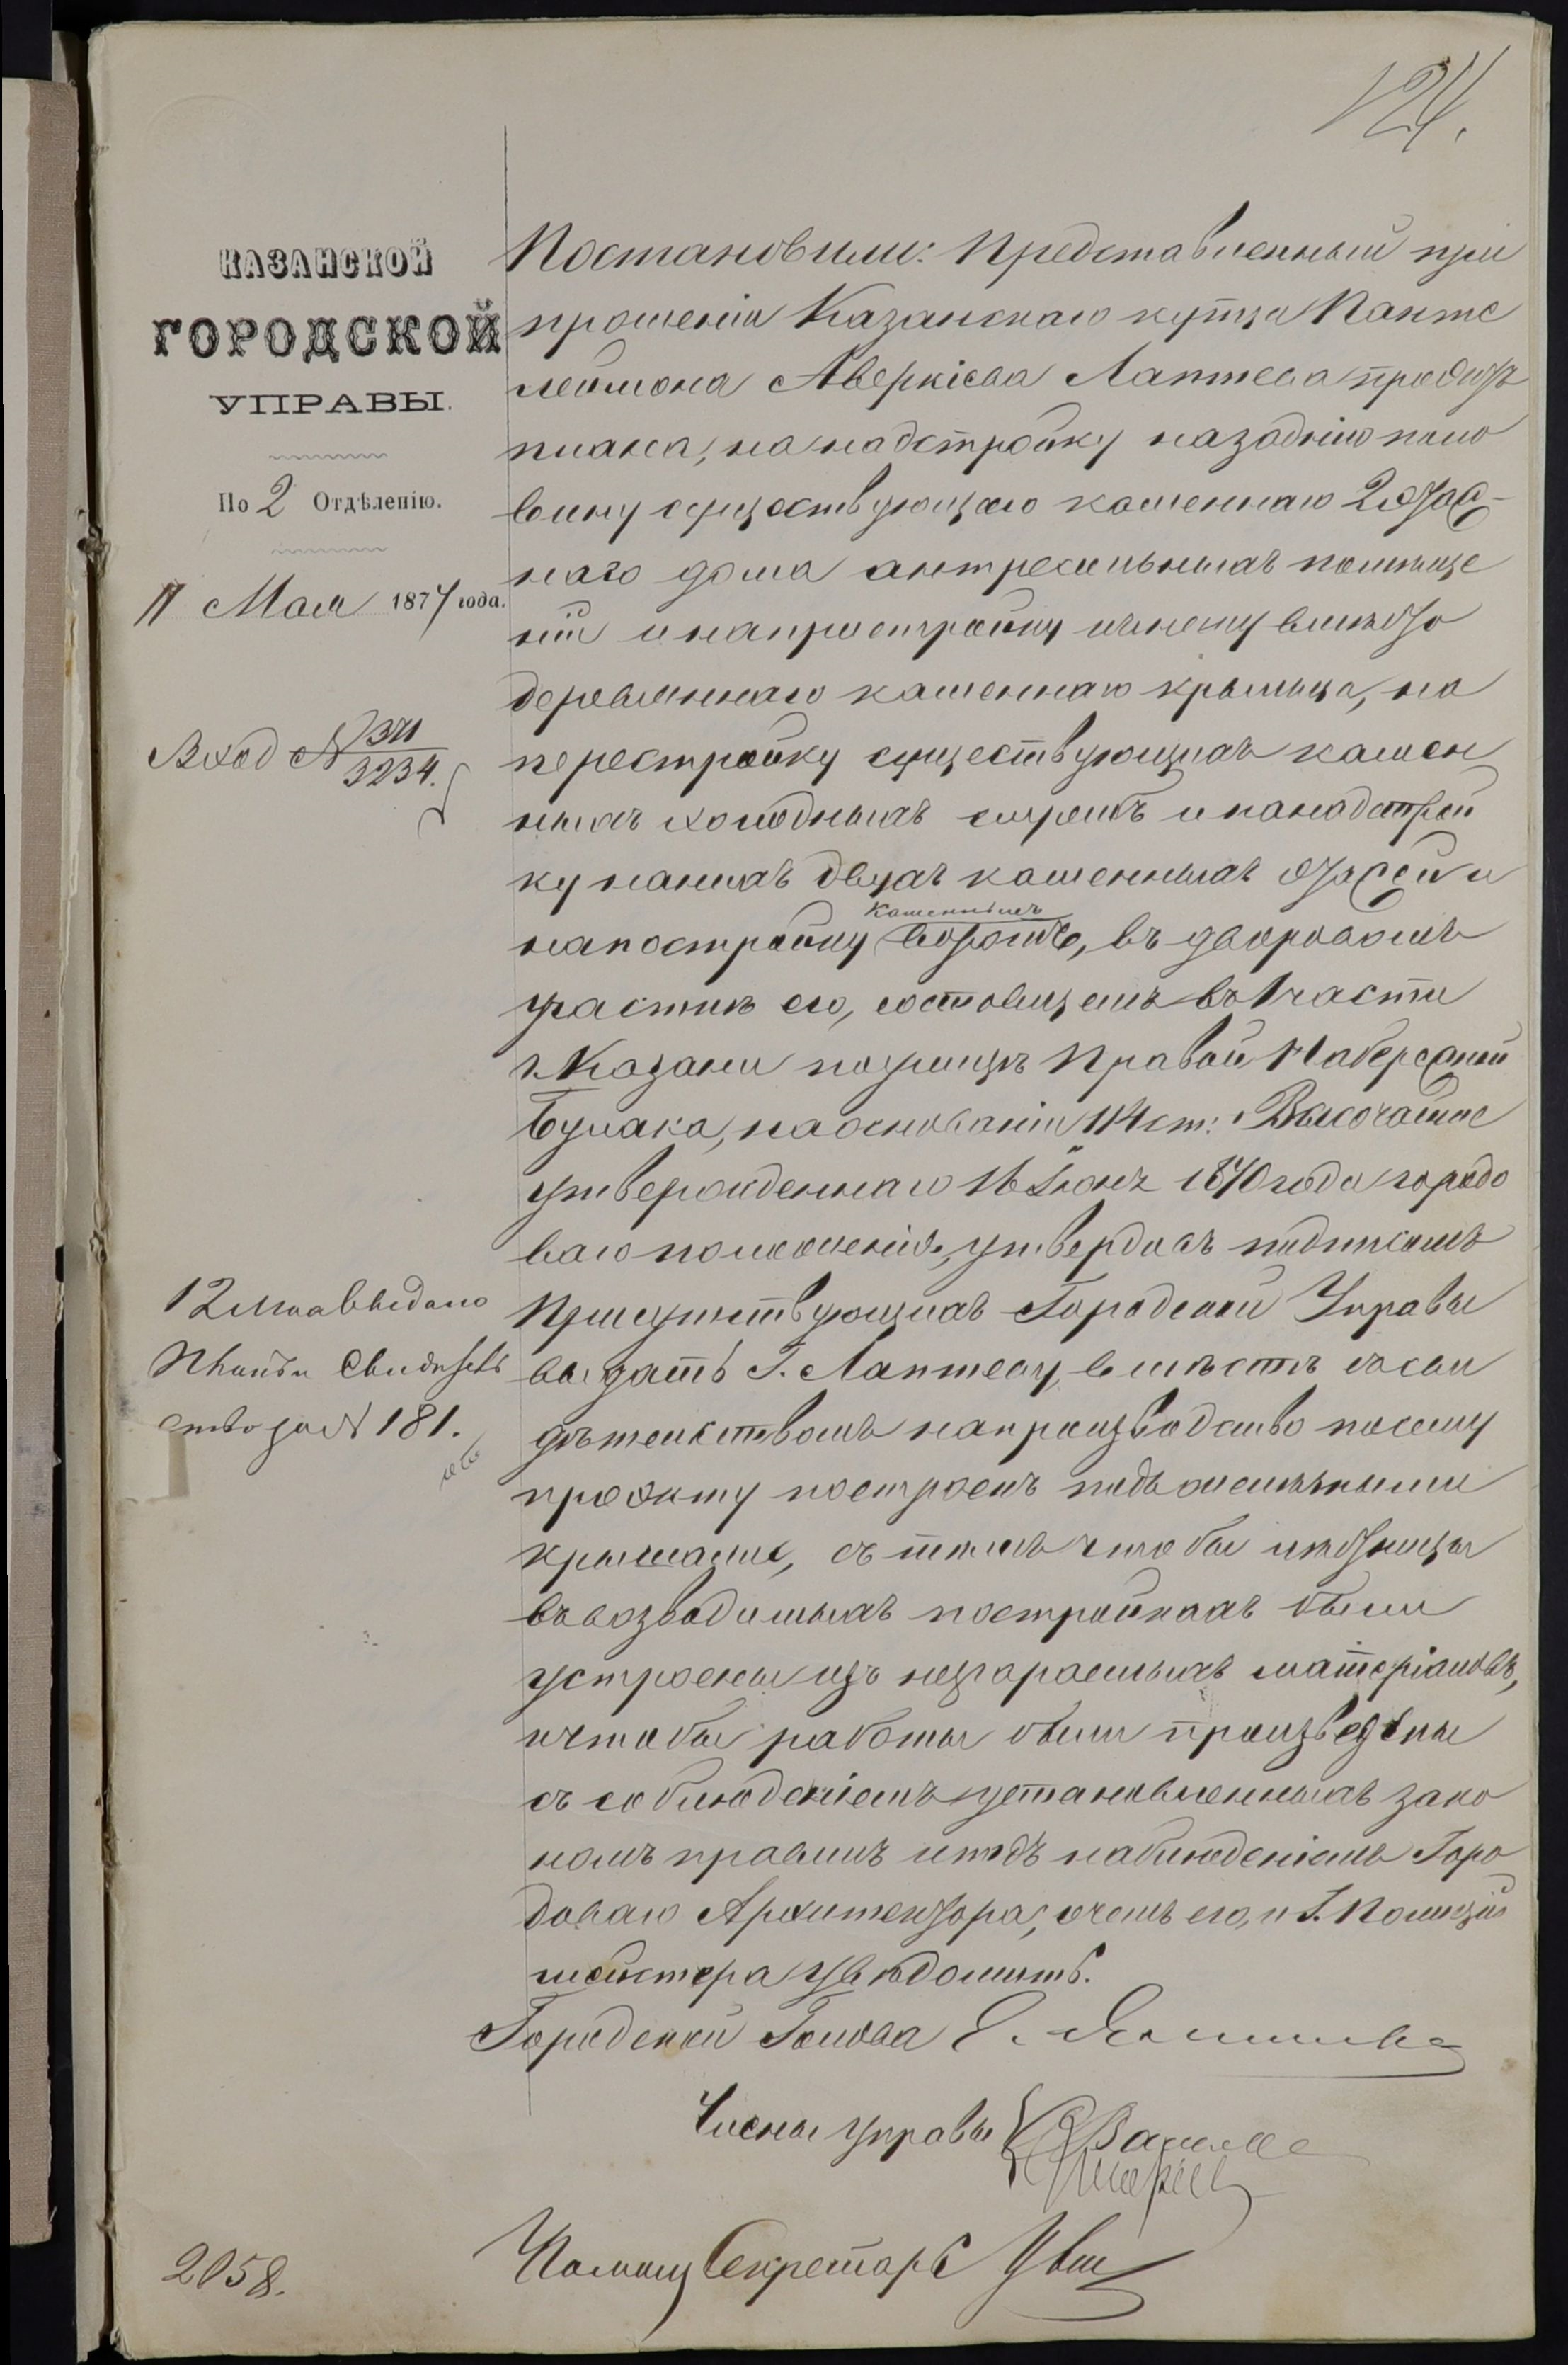 124.
КАЗАНСКОЙ
ГОРОДСКОЙ
УПРАВЫ.
По 2 Отдѣленію.
11 Мая 1877 года.
Вход № 371
3234.
12 Мая выдано
Планъ и Свидѣтель
ство за № 181.
2058.
Постановили: Представленный при
прошеніи Казанскаго купца Панте
леймона Аверкіева Лаптева проэктъ
плана, на надстройку на заднюю поло
вину существующаго каменнаго 2 этаж-
наго дома антресольныхъ помѣще
ній и на пристройку къ нему вмѣсто
деревяннаго каменнаго крыльца, на
перестройку существующихъ камен
ныхъ холодныхъ службъ и на надстрой
ку на нихъ двухъ каменныхъ этажей и
на постройку каменныхъ воротъ, въ дворовомъ
участкѣ его, состоящемъ въ 1 части
г. Казани по улицѣ Правой Набережной
Булака, на основаніи 114 ст: Высочайше
утвержденнаго 16 Іюня 1870 года городо
ваго положенія, утвердивъ подписомъ
Присутствующихъ Городской Управы
выдать Г. Лаптеву, вмѣстѣ съ сви
дѣтельствомъ на производство по сему
проэкту построекъ подъ желѣзными
крышами, съ тѣмъ чтобы лѣстницы
въ возводимыхъ постройкахъ были
устроены изъ несгораемыхъ матеріаловъ,
и чтобы работы были произведены
съ соблюденіемъ установленныхъ зако
номъ правилъ и подъ наблюденіемъ Горо
доваго Архитектора, о чемъ его, и Г. Полицій
мейстера увѣдомить.
Городской Голова
Члены управы
Помощ Секретарь